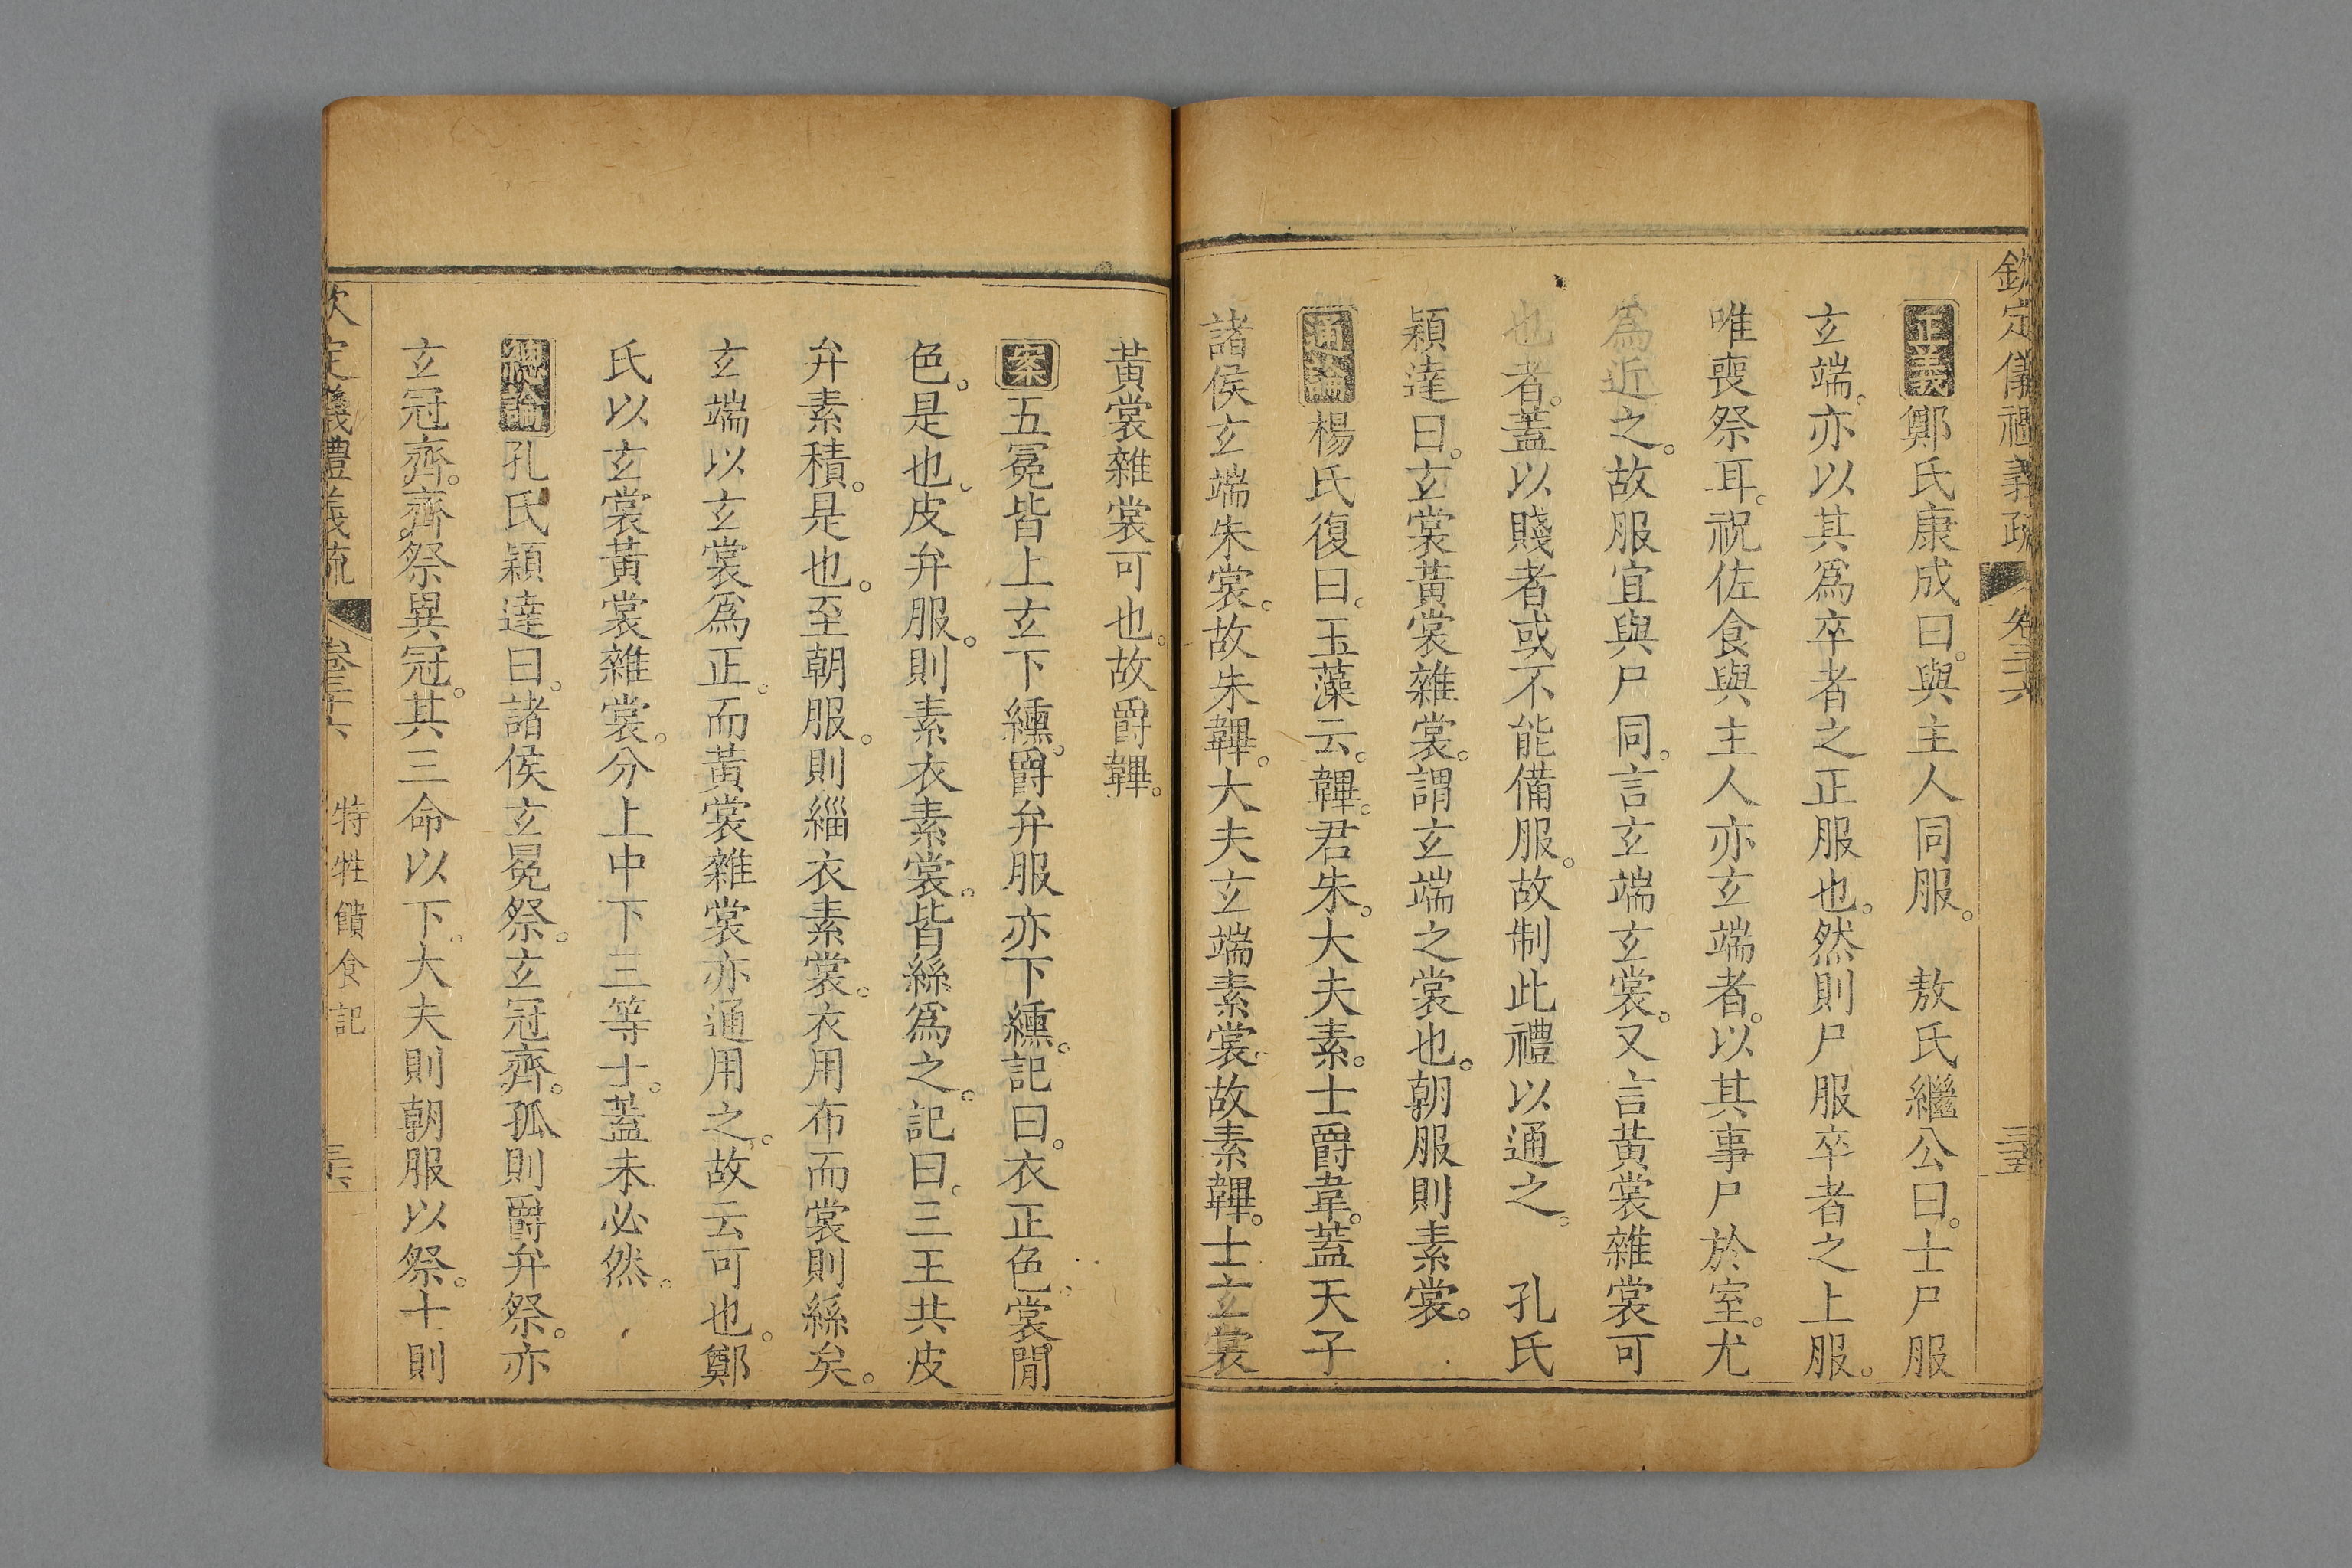 欽定儀禮義疏 卷三十六 三五
正義鄭氏康成曰。與主人同服。 敖氏繼公曰。士尸服
玄端。亦以其爲卒者之正服也。然則尸服卒者之上服。
唯喪祭耳。祝佐食與主人亦玄端者。以其事尸於室。尤
爲近之。故服宜與尸同。言玄端玄裳。又言黃裳雜裳可
也者。蓋以賤者或不能備服。故制此禮以通之。 孔氏
穎達曰。玄裳黃裳雜裳。謂玄端之裳也。朝服則素裳。
通論楊氏復曰。玉藻云。韠。君朱。大夫素。士爵韋。蓋天子
諸侯玄端朱裳。故朱韠。大夫玄端素裳。故素韠。士玄裳
黃裳雜裳可也。故爵韠。
案五冕皆上玄下纁。爵弁服亦下纁。記曰。衣正色。裳閒
色。是也。皮弁服。則素衣素裳。皆絲爲之。記曰。三王共皮
弁素積。是也。至朝服。則緇衣素裳。衣用布而裳則絲矣。
玄端以玄裳爲正。而黃裳雜裳亦通用之。故云可也。鄭
氏以玄裳黃裳雜裳。分上中下三等士。蓋未必然。
總論孔氏穎達曰。諸侯玄冕祭。玄冠齊。孤則爵弁祭。亦
玄冠齊。齊祭異冠。其三命以下。大夫則朝服以祭。士則
欽定儀禮義疏 卷三十六 特牲饋食記 三六